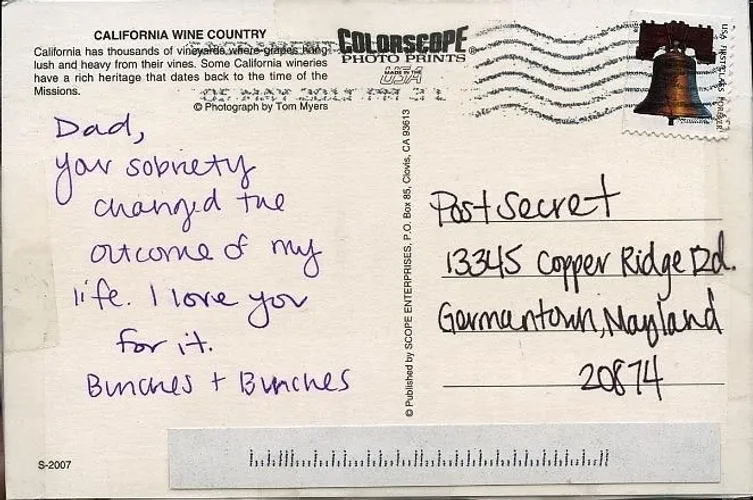 CALIFORNIA WINE COUNTRY
California has thousands of vineyards where grapes hang
lush and heavy from their vines. Some California wineries
have a rich heritage that dates back to the time of the
Missions.
© Photograph by Tom Myers
COLORSCOPE®
PHOTO PRINTS
MADE IN THE
USA
USA FIRST-CLASS FOREVER
Dad,
your sobriety
changed the
outcome of my
life. I love you
for it.
Bunches + Bunches
© Published by SCOPE ENTERPRISES, P.O. Box 85, Clovis, CA 93613
PostSecret
13345 Copper Ridge Rd.
Germantown, Mayland
20874
S-2007